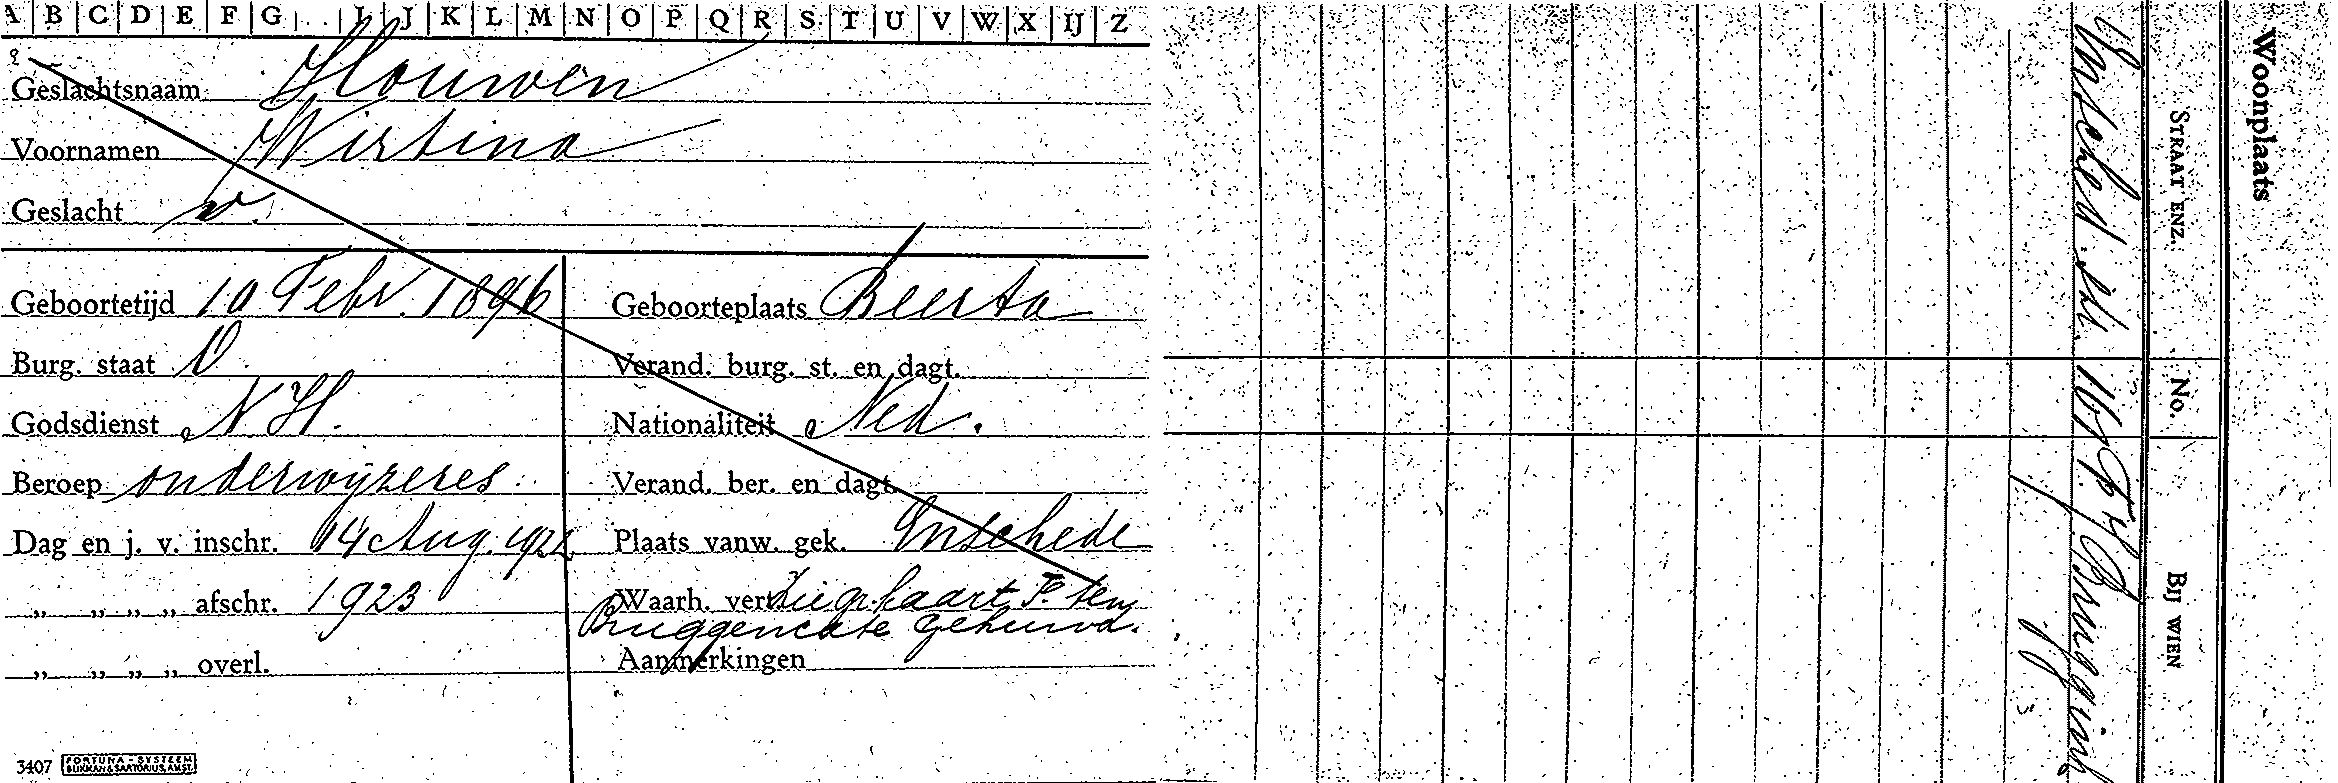 A B C D E F G I J K L M N O P Q R S T U V W X IJ Z
Geslachtsnaam Houwen
Voornamen Wirtina
Geslacht v.
Geboortetijd 10 Febr. 1896 Geboorteplaats Beerta
Burg. staat O Verand. burg. st. en dagt.
Godsdienst N.H. Nationaliteit Ned.
Beroep onderwijzeres Verand. ber. en dagt.
Dag en j. v. inschr. 14 Aug. Plaats vanw. gek. Enschede
„ „ „ „ afschr. 1923 Waarh. vert. kaart ten
Bruggencate gehuwd.
„ „ „ „ overl. Aanmerkingen
3407 FORTUNA-SYSTEEM
BLIKMAN & SARTORIUS, AMST.
Woonplaats
STRAAT ENZ. No. BIJ WIEN
Ensched. str. Bruggink